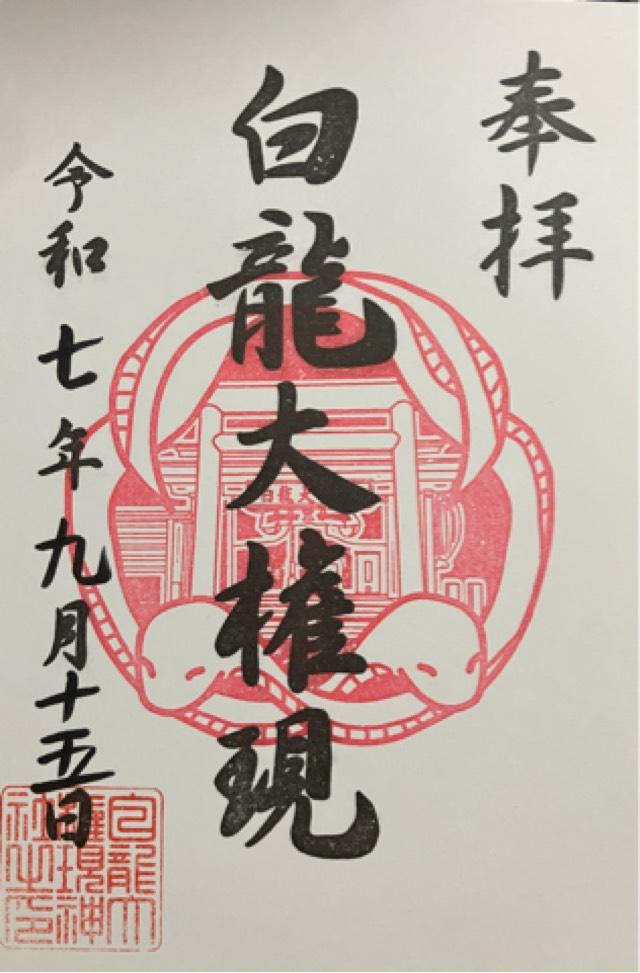 奉拝
白龍大権現
令和七年九月十五日
白龍大
権現神
社之印